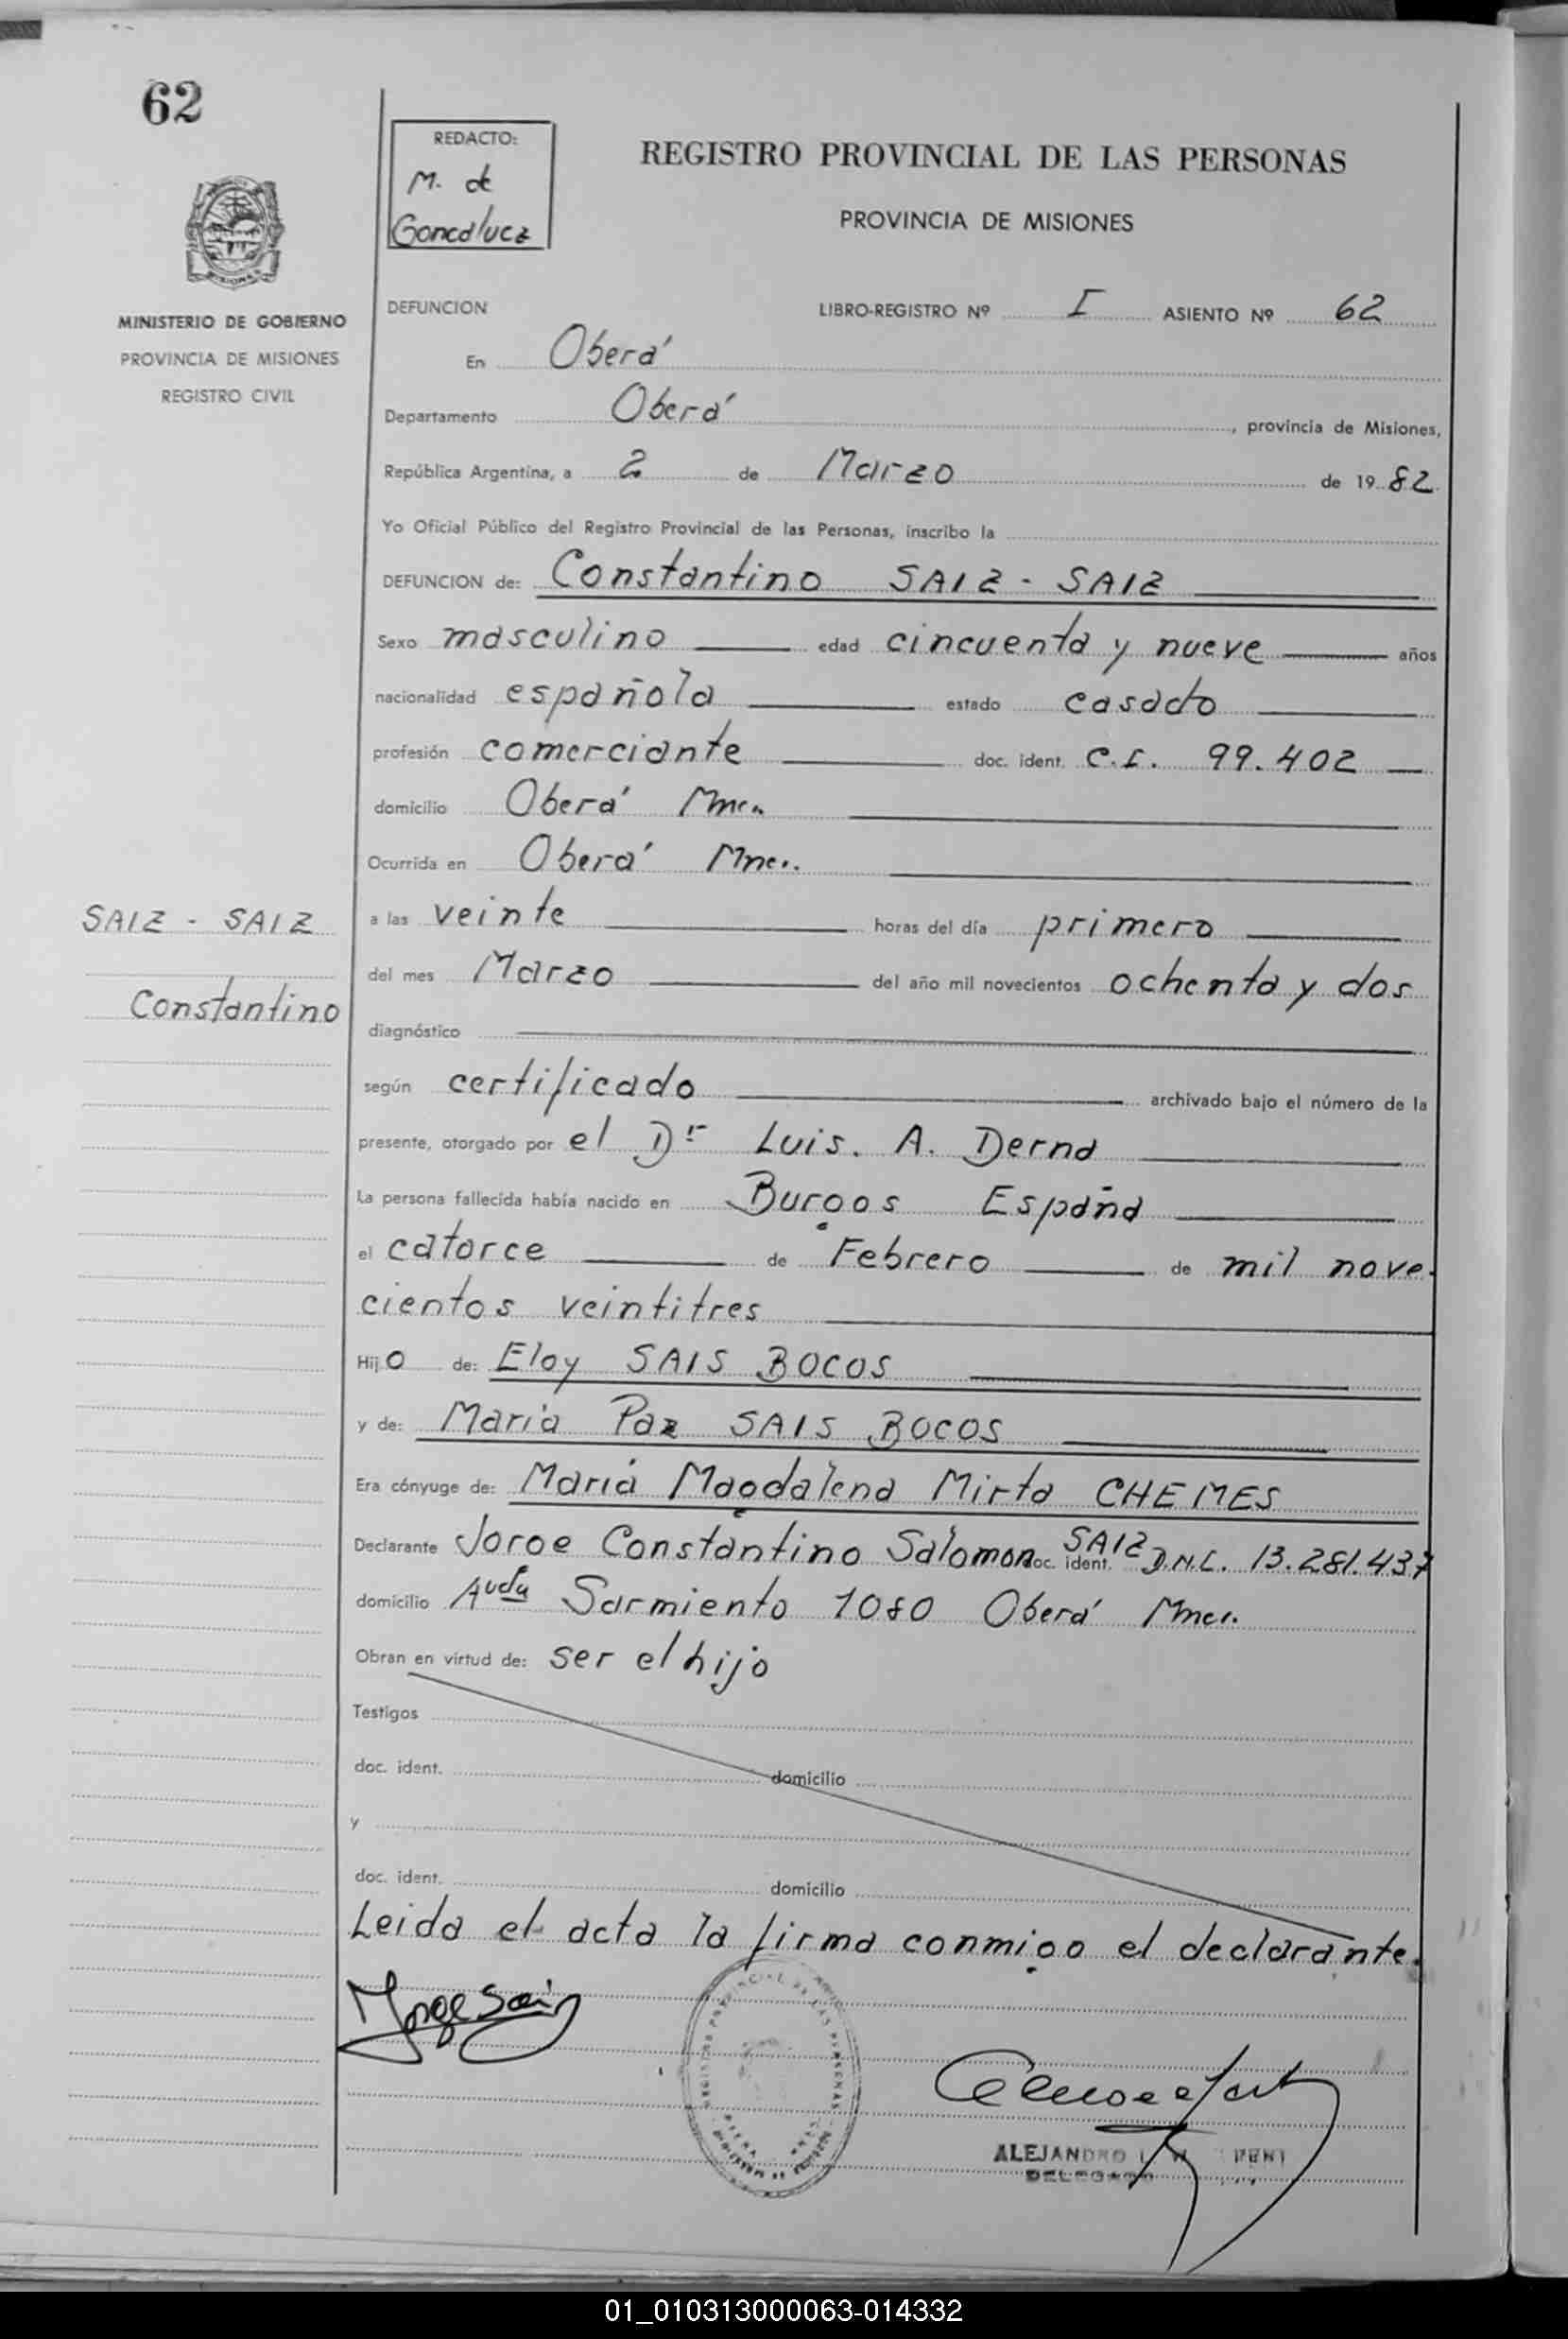 62
REDACTO:
M. de
Goncalvez
REGISTRO PROVINCIAL DE LAS PERSONAS
PROVINCIA DE MISIONES
MISIONES
MINISTERIO DE GOBIERNO
PROVINCIA DE MISIONES
REGISTRO CIVIL
DEFUNCION LIBRO-REGISTRO Nº I ASIENTO Nº 62
En Oberá
Departamento Oberá, provincia de Misiones,
República Argentina, a 2 de Marzo de 1982
Yo Oficial Público del Registro Provincial de las Personas, inscribo la
DEFUNCION de: Constantino SAIZ - SAIZ
Sexo masculino edad cincuenta y nueve años
nacionalidad española estado casado
profesión comerciante doc. ident. C.I. 99.402
domicilio Oberá Mnes.
Ocurrida en Oberá Mnes.
SAIZ - SAIZ
Constantino
a las veinte horas del día primero
del mes Marzo del año mil novecientos ochenta y dos
diagnóstico
según certificado archivado bajo el número de la
presente, otorgado por el Dr Luis. A. Derna
La persona fallecida había nacido en Burgos España
el catorce de Febrero de mil nove-
cientos veintitres
Hijo de: Eloy SAIS BOCOS
y de: Maria Paz SAIS BOCOS
Era cónyuge de: Maria Magdalena Mirta CHEMES
Declarante Jorge Constantino Salomon SAIZ doc. ident. D.N.I. 13.281.437
domicilio Avda Sarmiento 1080 Oberá Mnes.
Obran en virtud de: ser el hijo
Testigos
doc. ident. domicilio
y
doc. ident. domicilio
Leida el acta la firma conmigo el declarante.
Jorge Saiz
REGISTRO PROVINCIAL DE LAS PERSONAS
ALEJANDRO
DELEGADO
01_010313000063-014332